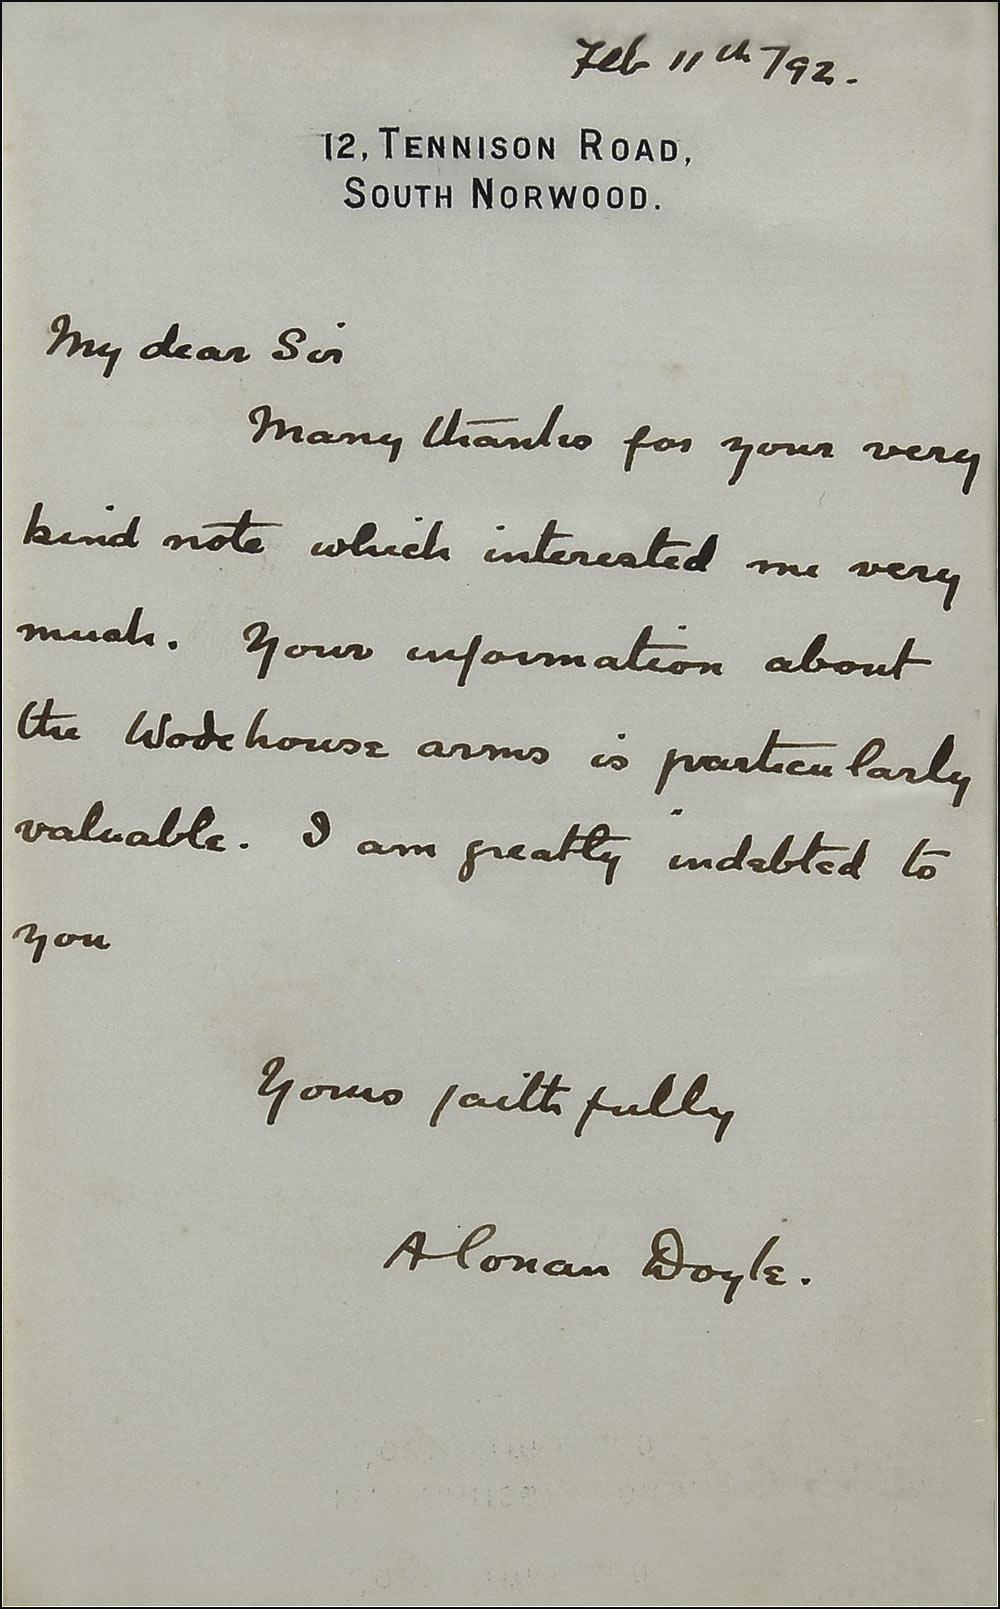 Feb 11th /92.
12, TENNISON ROAD,
SOUTH NORWOOD.
My dear Sir
Many thanks for your very
kind note which interested me very
much. Your information about
the Wodehouse arms is particularly
valuable. I am greatly indebted to
you
Yours faithfully
A Conan Doyle.